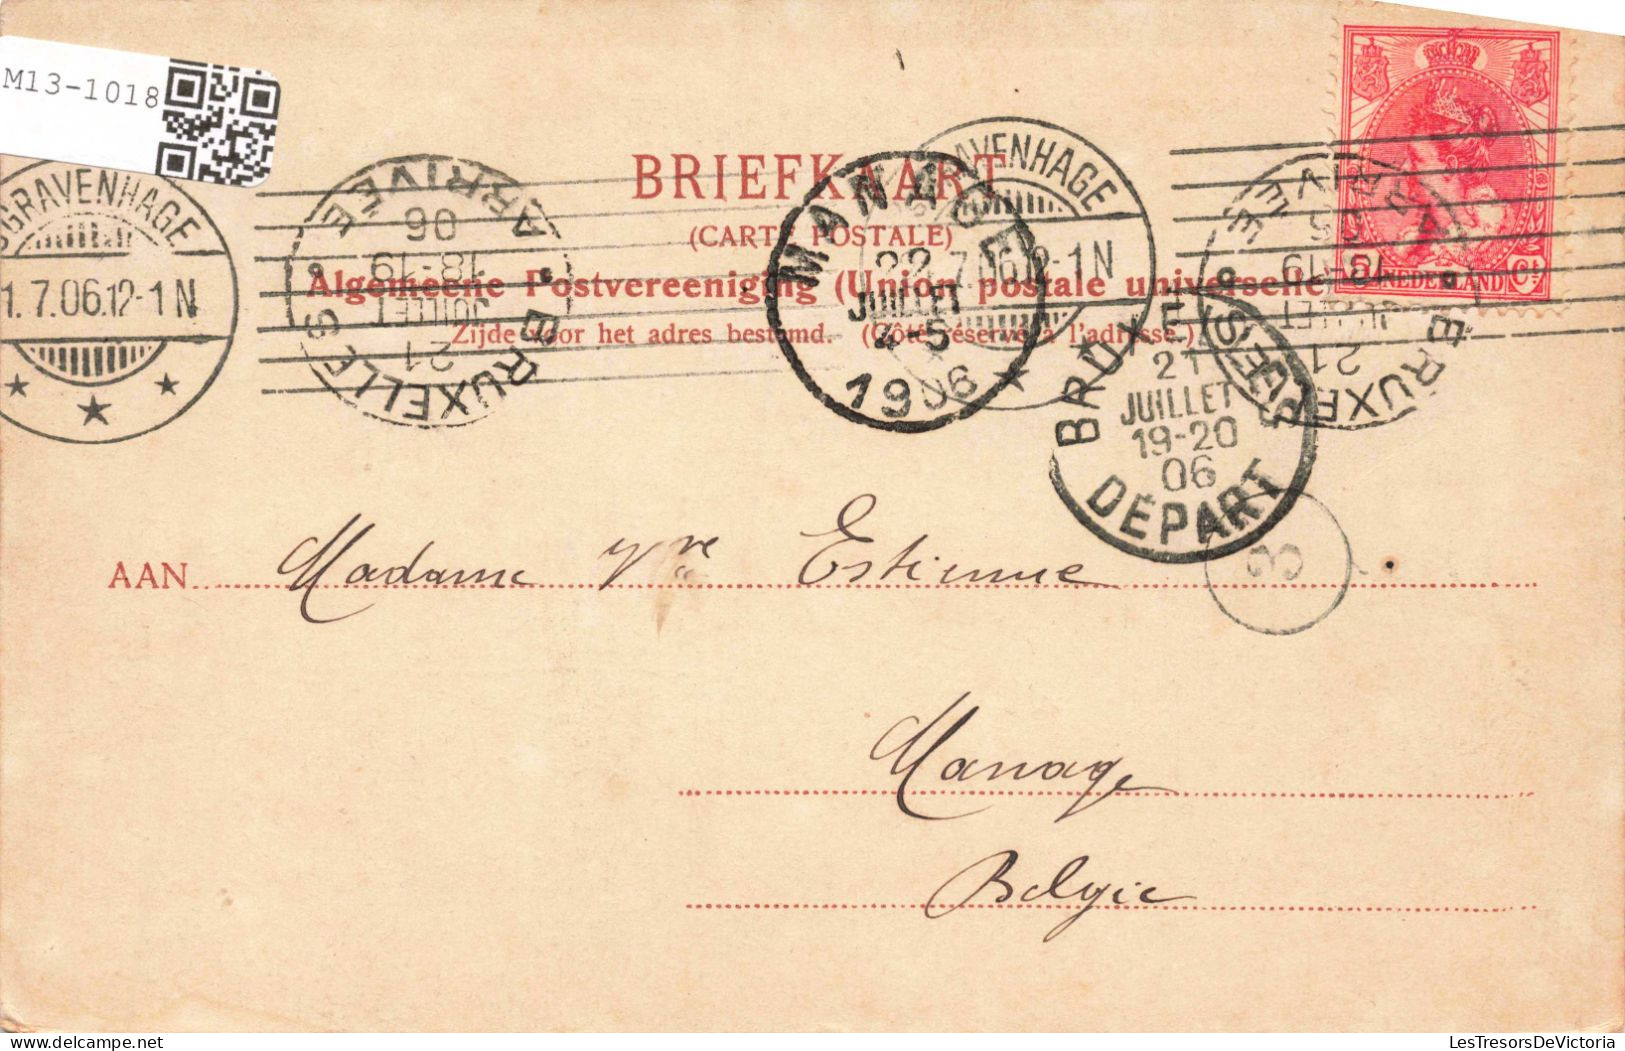 M13-1018
'SGRAVENHAGE
1.7.06.12-1 N
BRUXELLES
ARRIVÉE
21
JUILLET
18-19
06
BRIEFKAART
(CARTE POSTALE)
Algemeene Postvereeniging (Union postale universelle)
Zijde voor het adres bestemd. (Côté réservé à l'adresse.)
MANAGE
22
JUILLET
4-5
1906
GRAVENHAGE
7.06.12-1 N
BRUXELLES
21
JUILLET
19-20
06
DÉPART
ARRIVÉE
BRUXE
21
JUILLET
18-19
5 NEDERLAND Ct
3
AAN Madame Vve Estienne
Manage
Belgie
LesTresorsDeVictoria.com